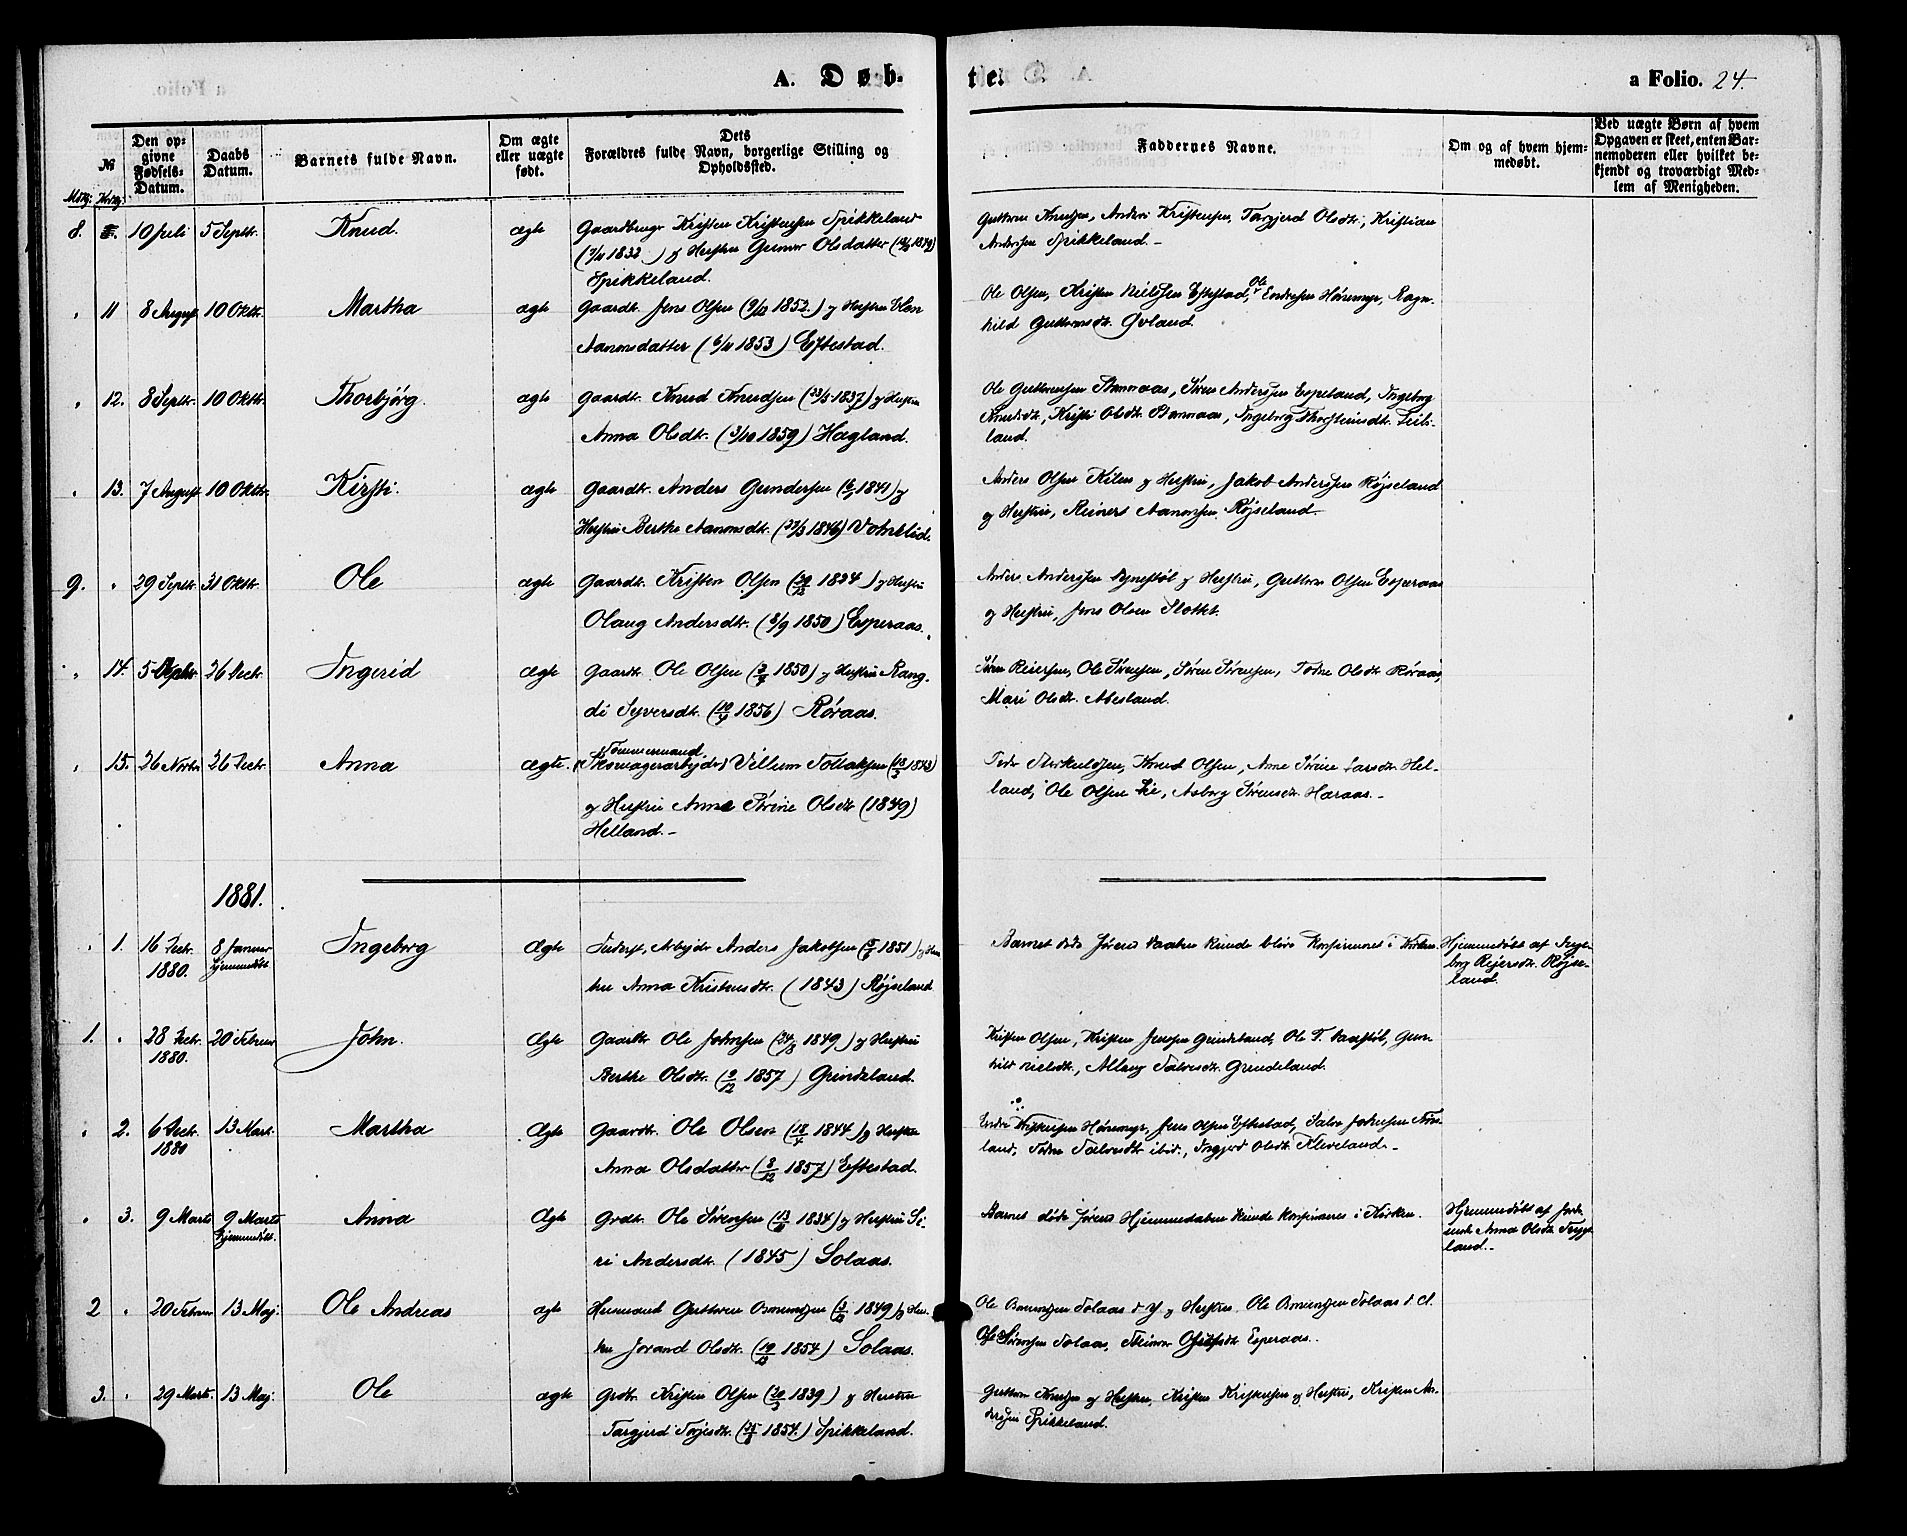 A. Døb-
te.
a Folio. 24.
№
Den op-
givne
Fødsels-
Datum.
Daabs
Datum.
Barnets fulde Navn.
Om ægte
eller uægte
født.
Dets
Forældres fulde Navn, borgerlige Stilling og
Opholdssted.
Faddernes Navne.
Om og af hvem hjem-
medøbt.
Ved uægte Børn af hvem
Opgaven er skeet, enten Bar-
nemoderen eller hvilket be-
kjendt og troværdigt Med-
lem af Menigheden.
8. 10 Juli 5 Septr. Knud. ægte Gaardbruger Kristen Kristensen Spikkeland
(1832) og Hustru Gunvor Olsdatter
Spikkeland.
Guttorm Knudsen, Anders Kristensen, Targjerd Olsdt., Kristian
Andersen Spikkeland.-
11 8 August 10 Oktr. Martha ægte Gaardt. Jens Olsen (9/12 1852.) og Hustru
Aanonsdatter (6/11 1853) Eftestad.
Ole Olsen, Kristen Nielsen Eftestad, Ole Endresen Hønemyr, Ragn-
hild Guttormsdt. Øvland.
12. 8 Septr. 10 Oktr. Thorbjørg. ægte Gaardt. Knud Knudsen (23/5 1837) og Hustru
Anna Olsdtr. (3/10 1859) Hægland.
Ole Guttormsen Stonnaas, Søren Andersen Espeland, Ingeborg
Knudsdt., Kristi Olsdt. Stonnaas, Ingeborg Thorsteinsdt. Leik-
land.
13. 7 August 10 Oktr. Kirsti. ægte Gaardt. Anders Gundersen (1841) og
Hustru Berthe Aanonsdt. (1846) Votnelid.
Anders Olsen Kilen og Hustru, Jakob Andersen Røjseland
og Hustru, Reinert Aanonsen Røjseland-
9. 29 Septr. 31 Oktr. Ole ægte Gaardt. Kristen Olsen (20/12 1824) og Hustru
Olaug Andersdtr. (8/9 1850) Esperaas.
Anders Andersen Nynestøl og Hustru, Guttorm Olsen Esperaas
og Hustru, Jens Olsen Slottet.
14. 26 Decbr. Ingerid ægte Gaardt Ole Olsen (1850) og Hustru Rang-
di Syversdt. (1856) Røraas.
Søren Reiersen, Ole Sørensen, Søren Sørensen, Todne Olsdt Røraas,
Mari Olsdt. Abesland.
15. 26 Novbr 26 Decbr. Anna ægte. Tømmermand
Villum Tollaksen
og Hustru Anne Sørine Olsdt (1849)
Helland.-
Knud Olsen, Anne Sørine Larsdt. Hel-
land, Ole Olsen Lie, Asborg Sørensdt. Haraas.-
1881.
1. 16 Decbr.
1880. 8 Januar
hjemmedøbt Ingeborg Ægte Inderst, Arbejder Anders Jakobsen (1851) og Hus-
tru Anna Kristensdt. (1843) Røjseland
Barnet døde førend Daaben kunde blive konfirmeret i Kirken.
Hjemmedøbt af Inge-
borg Reiersdt. Røjse-
land.
1. 28 Decbr.
1880. 20 Februar John. Ægte Gaardbr Ole Johnsen (24/8 1849.) og Hustru
Berthe Olsdt. (9/12 1857) Grindeland.
Kristen Olsen, Kristen Jensen Grindeland, Ole T. Vasstøl, Gun-
hild Nielsdt., Allaug Salvesdt. Grindeland.
2. 6 Decbr.
1880 13 Mart. Martha Ægte Gaardt. Ole Olsen (18/4 1844) og Hustru
Anna Olsdatter (8/12 1857) Eftestad.
Endre Kristensen Hønemyr, Jens Olsen Eftestad, Salve Johnsen
land, Todne Salvesdt. ibid., Ingjerd Olsdt. Kleveland.-
3. 9 Marts 9 Marts
hjemmedøbt. Anna Ægte Grdt. Ole Sørensen (1834) og Hustru Si-
ri Andersdt. (1845) Solaas.
Barnet døde førend Hjemmedaaben kunde konfirmeres i Kirken.
Hjemmedøbt af Jorde-
mode Anna Olsdt. Trygs-
land.-
2 20 Februar 13 Maj. Ole Andreas ægte Husmand Guttorm (1849) og Hus-
tru Jorand Olsdt. (19/12 1854) Solaas.
Solaas d. Y. og Hustru, Ole Solaas d. Æ.
Ole Sørensen Solaas, Esperaas..
3. 29 Marts. 13 Maj. Ole ægte Grdbr. Kristen Olsen (1839) og Hustru
Targjerd Torjesdt. (1854.) Spikkeland.
Guttorm Knudsen og Hustru, Kristen Kristensen og Hustru, Kristen An-
dersen Spikkeland.